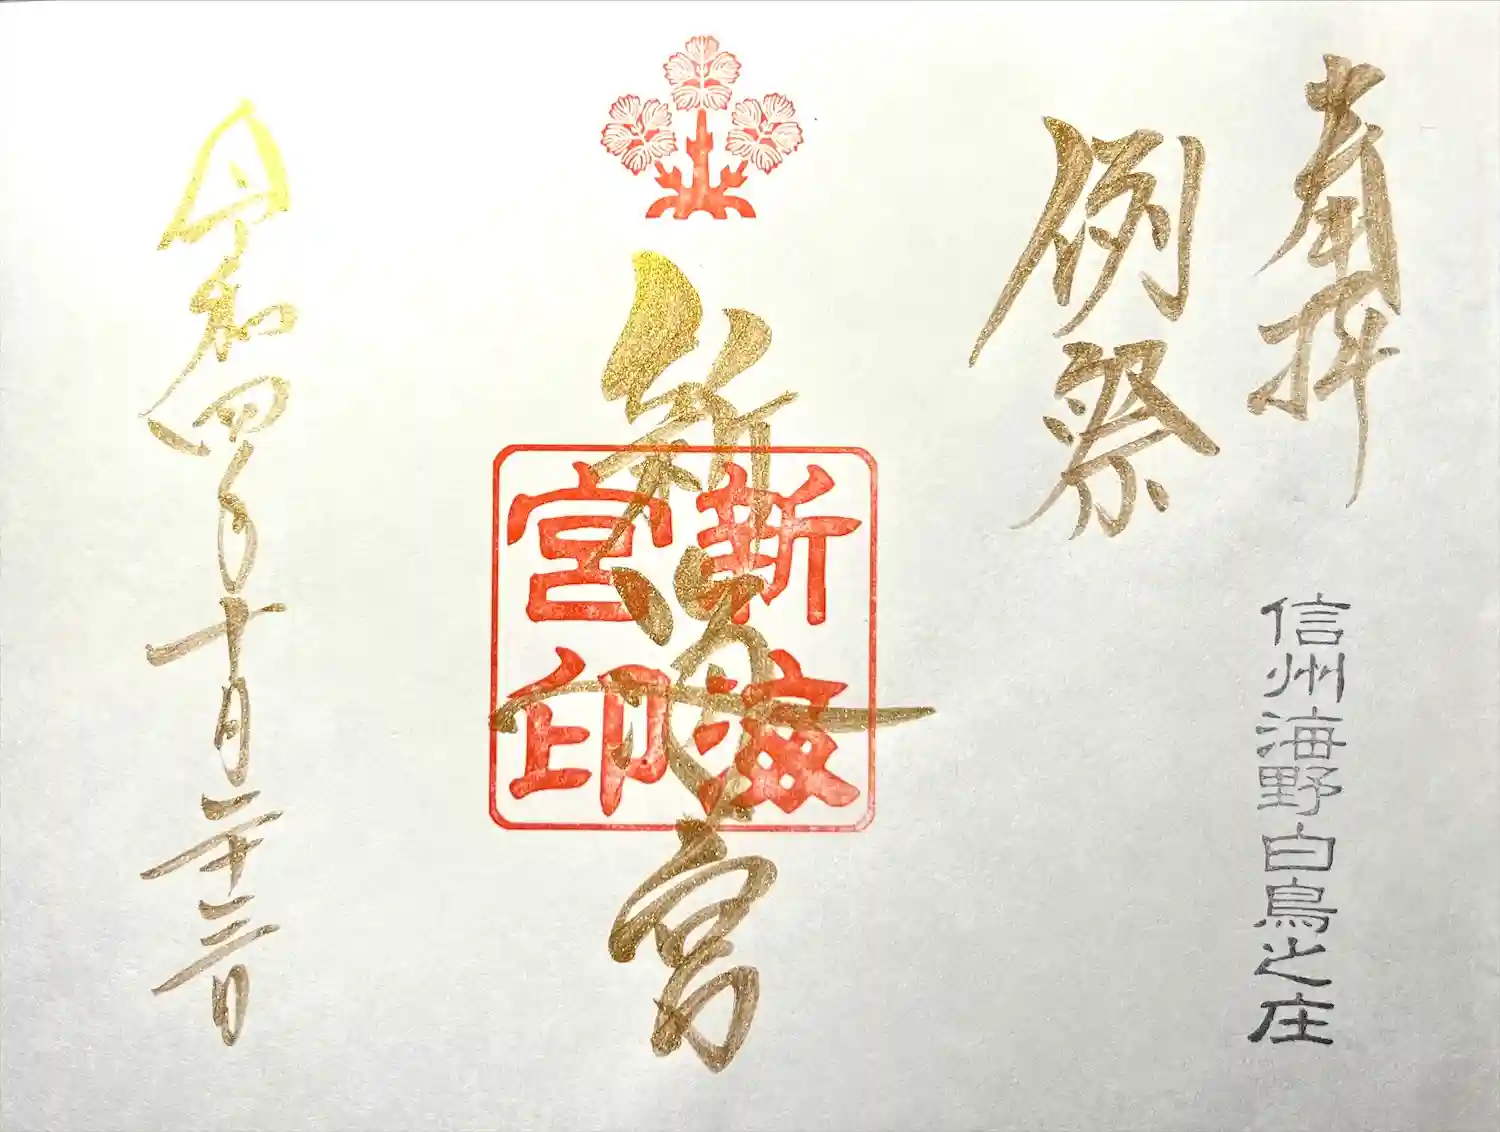 奉拝
信州海野白鳥之庄
例祭
新海宮
新海宮印
令和四年十月二十三日